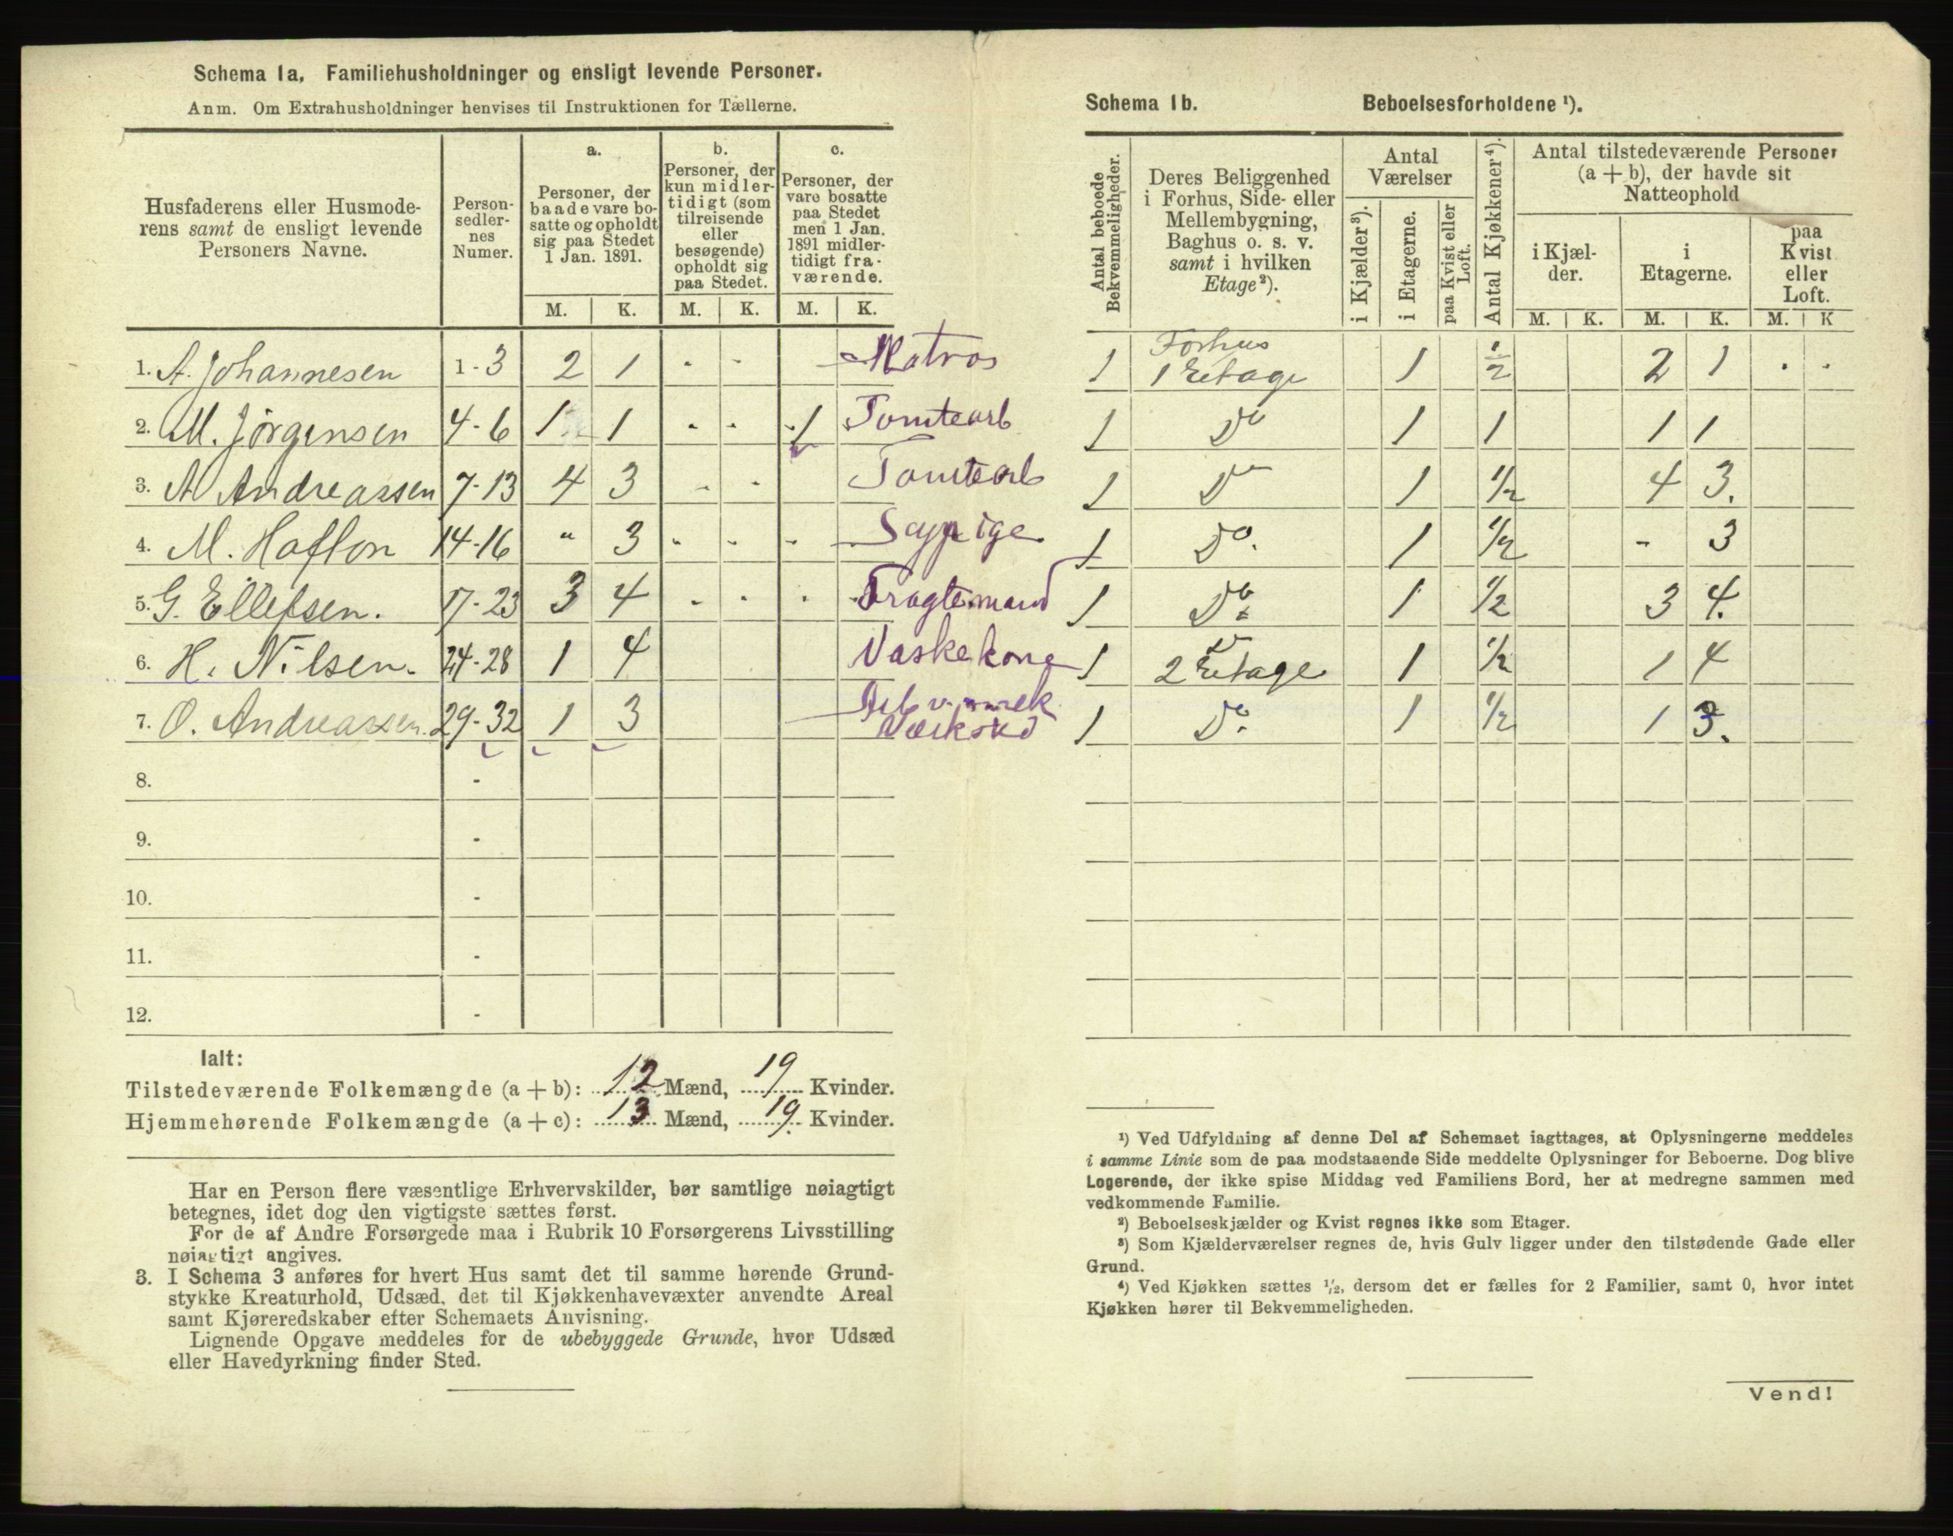 Schema 1a. Familiehusholdninger og ensligt levende Personer.
Anm. Om Extrahusholdninger henvises til Instruktionen for Tællerne.
Husfaderens eller Husmoderens samt de ensligt levende Personers Navne.
Person-sedler-nes Numer.
a.
Personer, der baade vare bosatte og opholdt sig paa Stedet 1 Jan. 1891.
b.
Personer, der kun midlertidigt (som tilreisende eller besøgende) opholdt sig paa Stedet.
c.
Personer, der vare bosatte paa Stedet men 1 Jan. 1891 midlertidigt fraværende.
M. K. M. K. M. K.
1. A. Johannesen 1-3 2 1 - - Matros
2. M. Jørgensen 4-6 1 1 - - 1 Tomtearb
3. A Andreassen 7-13 4 3 - - Tomtearb
4. M. Haflon 14-16 " 3 - - - Sypige
5. G. Ellefsen. 17-23 3 4 - - - Fragtemand
6. H. Nilsen. 24-28 1 4 Vaskekone
7. O. Andreassen. 29-32 1 3 Arb v. mek Værksted
8. -
9. -
10. -
11. -
12. -
Ialt:
Tilstedeværende Folkemængde (a + b): 12 Mænd, 19 Kvinder.
Hjemmehørende Folkemængde (a + c): 13 Mænd, 19 Kvinder.
Har en Person flere væsentlige Erhvervskilder, bør samtlige nøiagtigt
betegnes, idet dog den vigtigste sættes først.
For de af Andre Forsørgede maa i Rubrik 10 Forsørgerens Livsstilling
nøiagtigt angives.
3. I Schema 3 anføres for hvert Hus samt det til samme hørende Grund-
stykke Kreaturhold, Udsæd, det til Kjøkkenhavevæxter anvendte Areal
samt Kjøreredskaber efter Schemaets Anvisning.
Lignende Opgave meddeles for de ubebyggede Grunde, hvor Udsæd
eller Havedyrkning finder Sted.
Schema 1b. Beboelsesforholdene ¹).
Antal beboede Bekvemmeligheder.
Deres Beliggenhed i Forhus, Side- eller Mellembygning, Baghus o. s. v. samt i hvilken Etage ²).
Antal Værelser
i Kjælder ³).
i Etagerne.
paa Kvist eller Loft.
Antal Kjøkkener ⁴).
Antal tilstedeværende Personer (a + b), der havde sit Natteophold
i Kjælder.
i Etagerne.
paa Kvist eller Loft.
M. K. M. K. M. K
1 Forhus 1 Etage 1 1/2 2 1 - -
1 Do 1 1 1 1
1 Do 1 1/2 4 3.
1 Do. 1 1/2 - 3
1 Do. 1 1/2 3 4.
1 2 Etage 1 1/2 1 4
1 Do. 1 1/2 1 3.
¹) Ved Udfyldning af denne Del af Schemaet iagttages, at Oplysningerne meddeles
i samme Linie som de paa modstaaende Side meddelte Oplysninger for Beboerne. Dog blive
Logerende, der ikke spise Middag ved Familiens Bord, her at medregne sammen med
vedkommende Familie.
²) Beboelseskjælder og Kvist regnes ikke som Etager.
³) Som Kjælderværelser regnes de, hvis Gulv ligger under den tilstødende Gade eller
Grund.
⁴) Ved Kjøkken sættes ½, dersom det er fælles for 2 Familier, samt 0, hvor intet
Kjøkken hører til Bekvemmeligheden.
Vend!